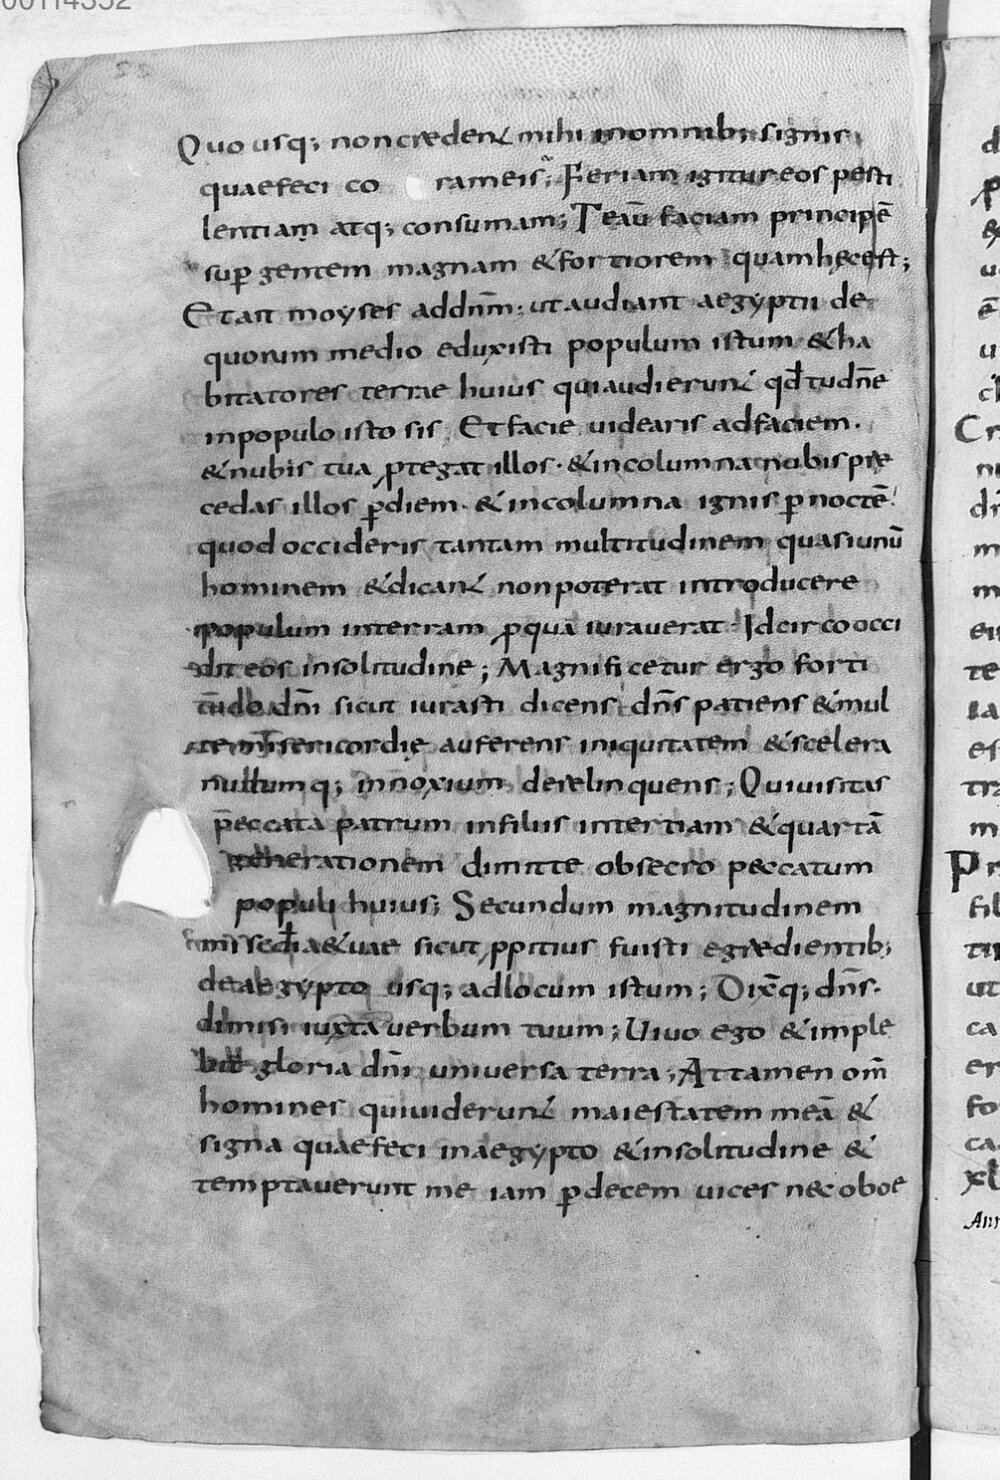 00114352
22
Quo usq; non credent mihi in omnib; signis
quae feci co rameis; Feriam igitur eos pesti
lentiam atq; consumam; Te aū faciam principē
sup̄ gentem magnam & fortiorem quam hęc est;
Et ait moyses ad dn̄m: ut audiant aegyptii de
quorum medio eduxisti populum istum & ha
bitatores terrae huius qui audierunt qđ tu dn̄e
in populo isto sis. Et facie videaris ad faciem.
& nubis tua ꝓtegat illos. & in columna nubis præ
cedas illos p̄ diem. & in columna ignis p̄ noctē.
quod occideris tantam multitudinem quasi unū
hominem & dicant non poterat introducere
populum in terram ꝓ quā iuraverat. Idcirco occi
dit eos in solitudine; Magnificetur ergo forti
dn̄i sicut iurasti dicens dn̄s patiens & mul
misericordię auferens iniquitatem & scelera
nullumq; innoxium derelinquens; Qui visitas
peccata patrum in filiis in tertiam & quartā
generationem dimitte obsecro peccatum
populi huius; Secundum magnitudinem
sicut ꝓpitius fuisti egredientib;
de aegypto usq; ad locum istum; Dixq; dn̄s.
dimisi iuxta verbum tuum; Vivo ego & imple
gloria dn̄i universa terra; Attamen om̄
homines qui viderunt maiestatem meā &
signa quae feci in aegypto & in solitudine &
temptaverunt me iam p̄ decem vices nec oboe